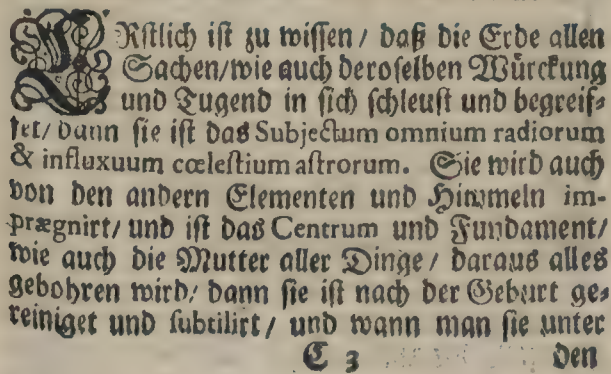 ERstlich ist zu wissen / daß die Erde allen
Sachen/wie auch deroselben Würckung
und Tugend in sich schleust und begreif⸗
fet/ dann sie ist das Subjectum omnium radiorum
& influxuum cœlestium astrorum. Sie wird auch
von den andern Elementen und Himmeln im-
prægnirt/ und ist das Centrum und Fundament/
wie auch die Mutter aller Dinge / daraus alles
gebohren wird/ dann sie ist nach der Geburt ge⸗
reiniget und subtilirt / und wann man sie unter
C 3 den